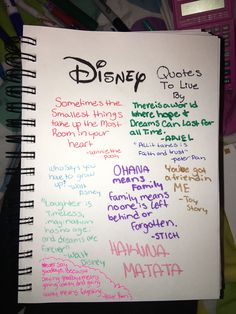 DISNEY
Quotes To Live
By
Sometimes the
Smallest things
take up the Most
Room in your
heart
-winnie the
pooh
There is a world
where hope &
Dreams Can Last for
all Time.
-ARIEL
"All it takes is
Faith and trust"
-peter Pan
who says you
have to grow
up? -walt
Disney
OHANA
means
Family
Family means
no one is left
behind or
Forgotten.
-STICH
You've got
a friend in
ME
-Toy
Story
"Laughter is
Timeless,
imagination
has no age.
and dreams are
Forever"
-Walt
Disney
HAKUNA
MATATA
Never Say
goodbye, Because
Saying goodbye means
going away and going
away means forgetting
-Peter Pan